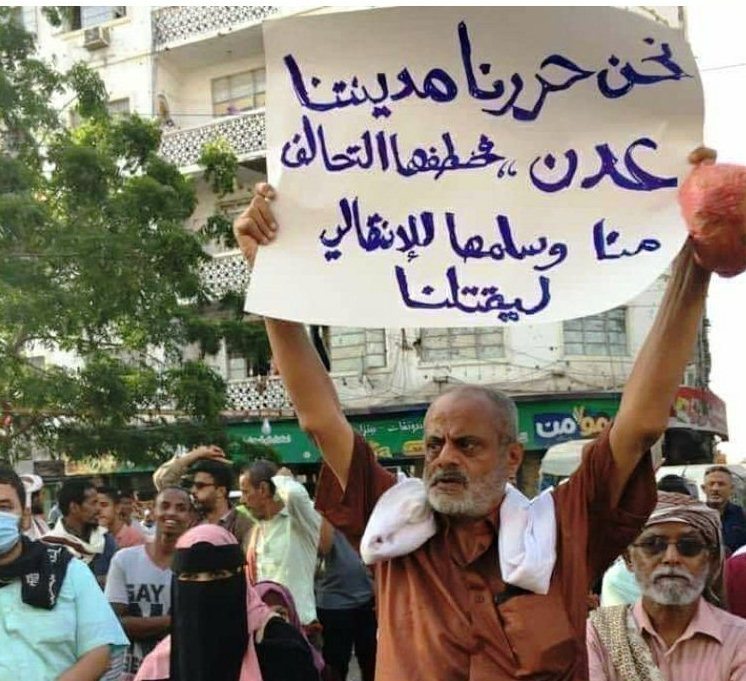 نحن حررنا مدينتنا
عدن ،، فخطفها التحالف
منا وسلمها للإنتقالي
ليقتلنا
مؤمن
GAY